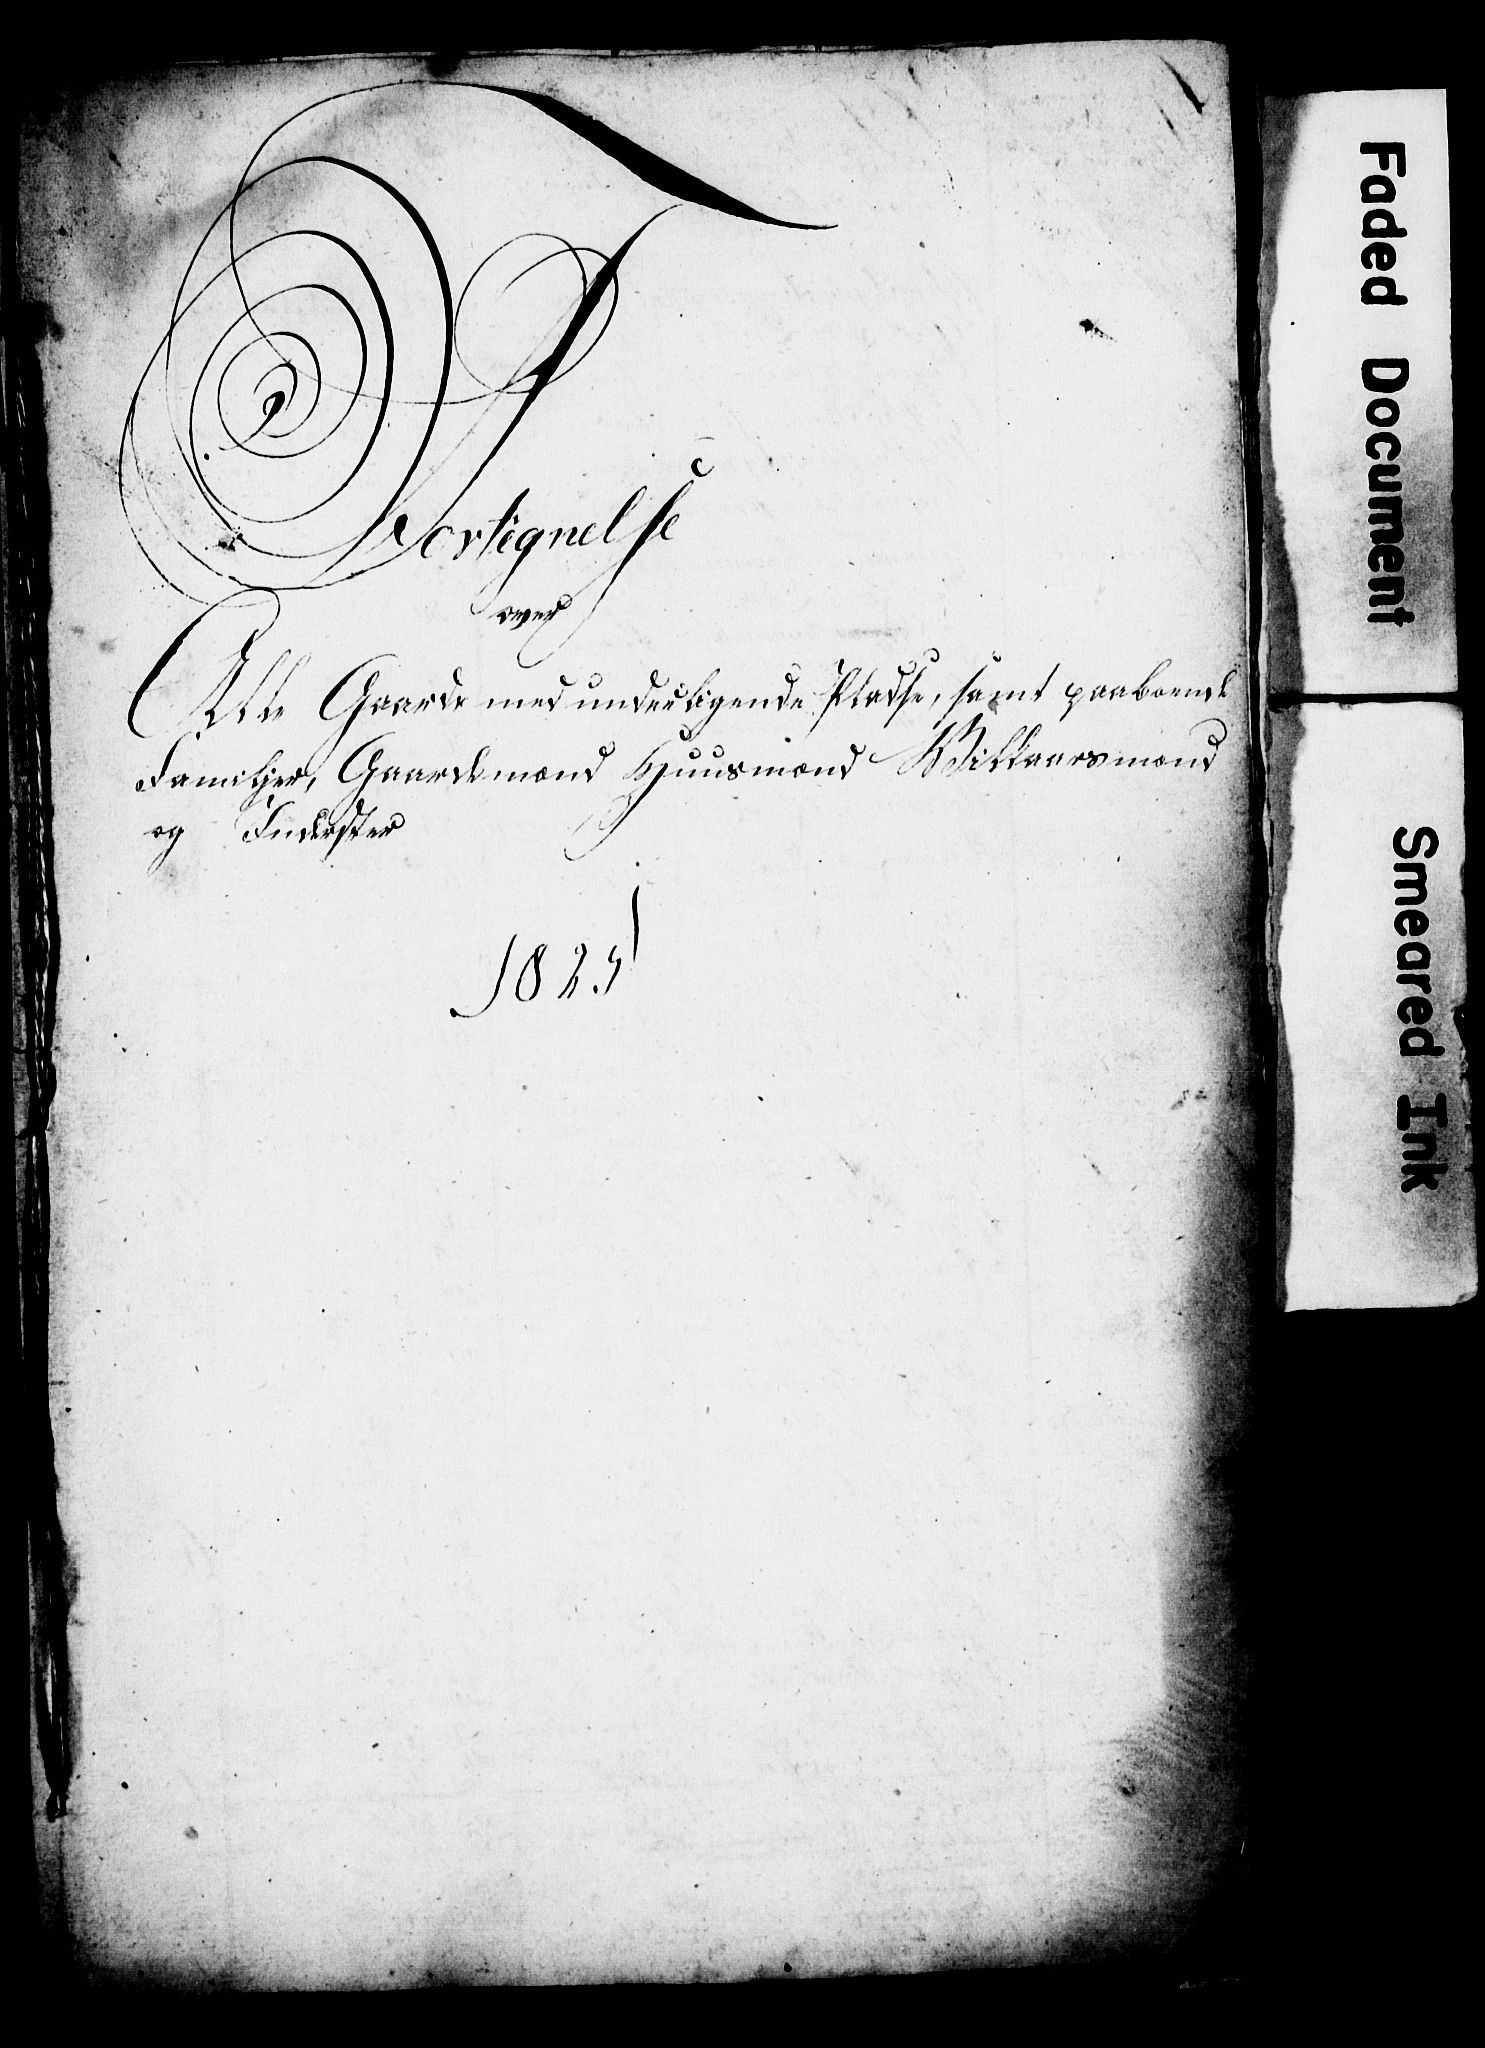 Fortegnelse
over
Alle Gaarde med underligende Pladse, samt paaboende
Familier, Gaardemænd Huusmænd Vilkaarsmænd
og Inderster
1825
Faded Document
Smeared Ink